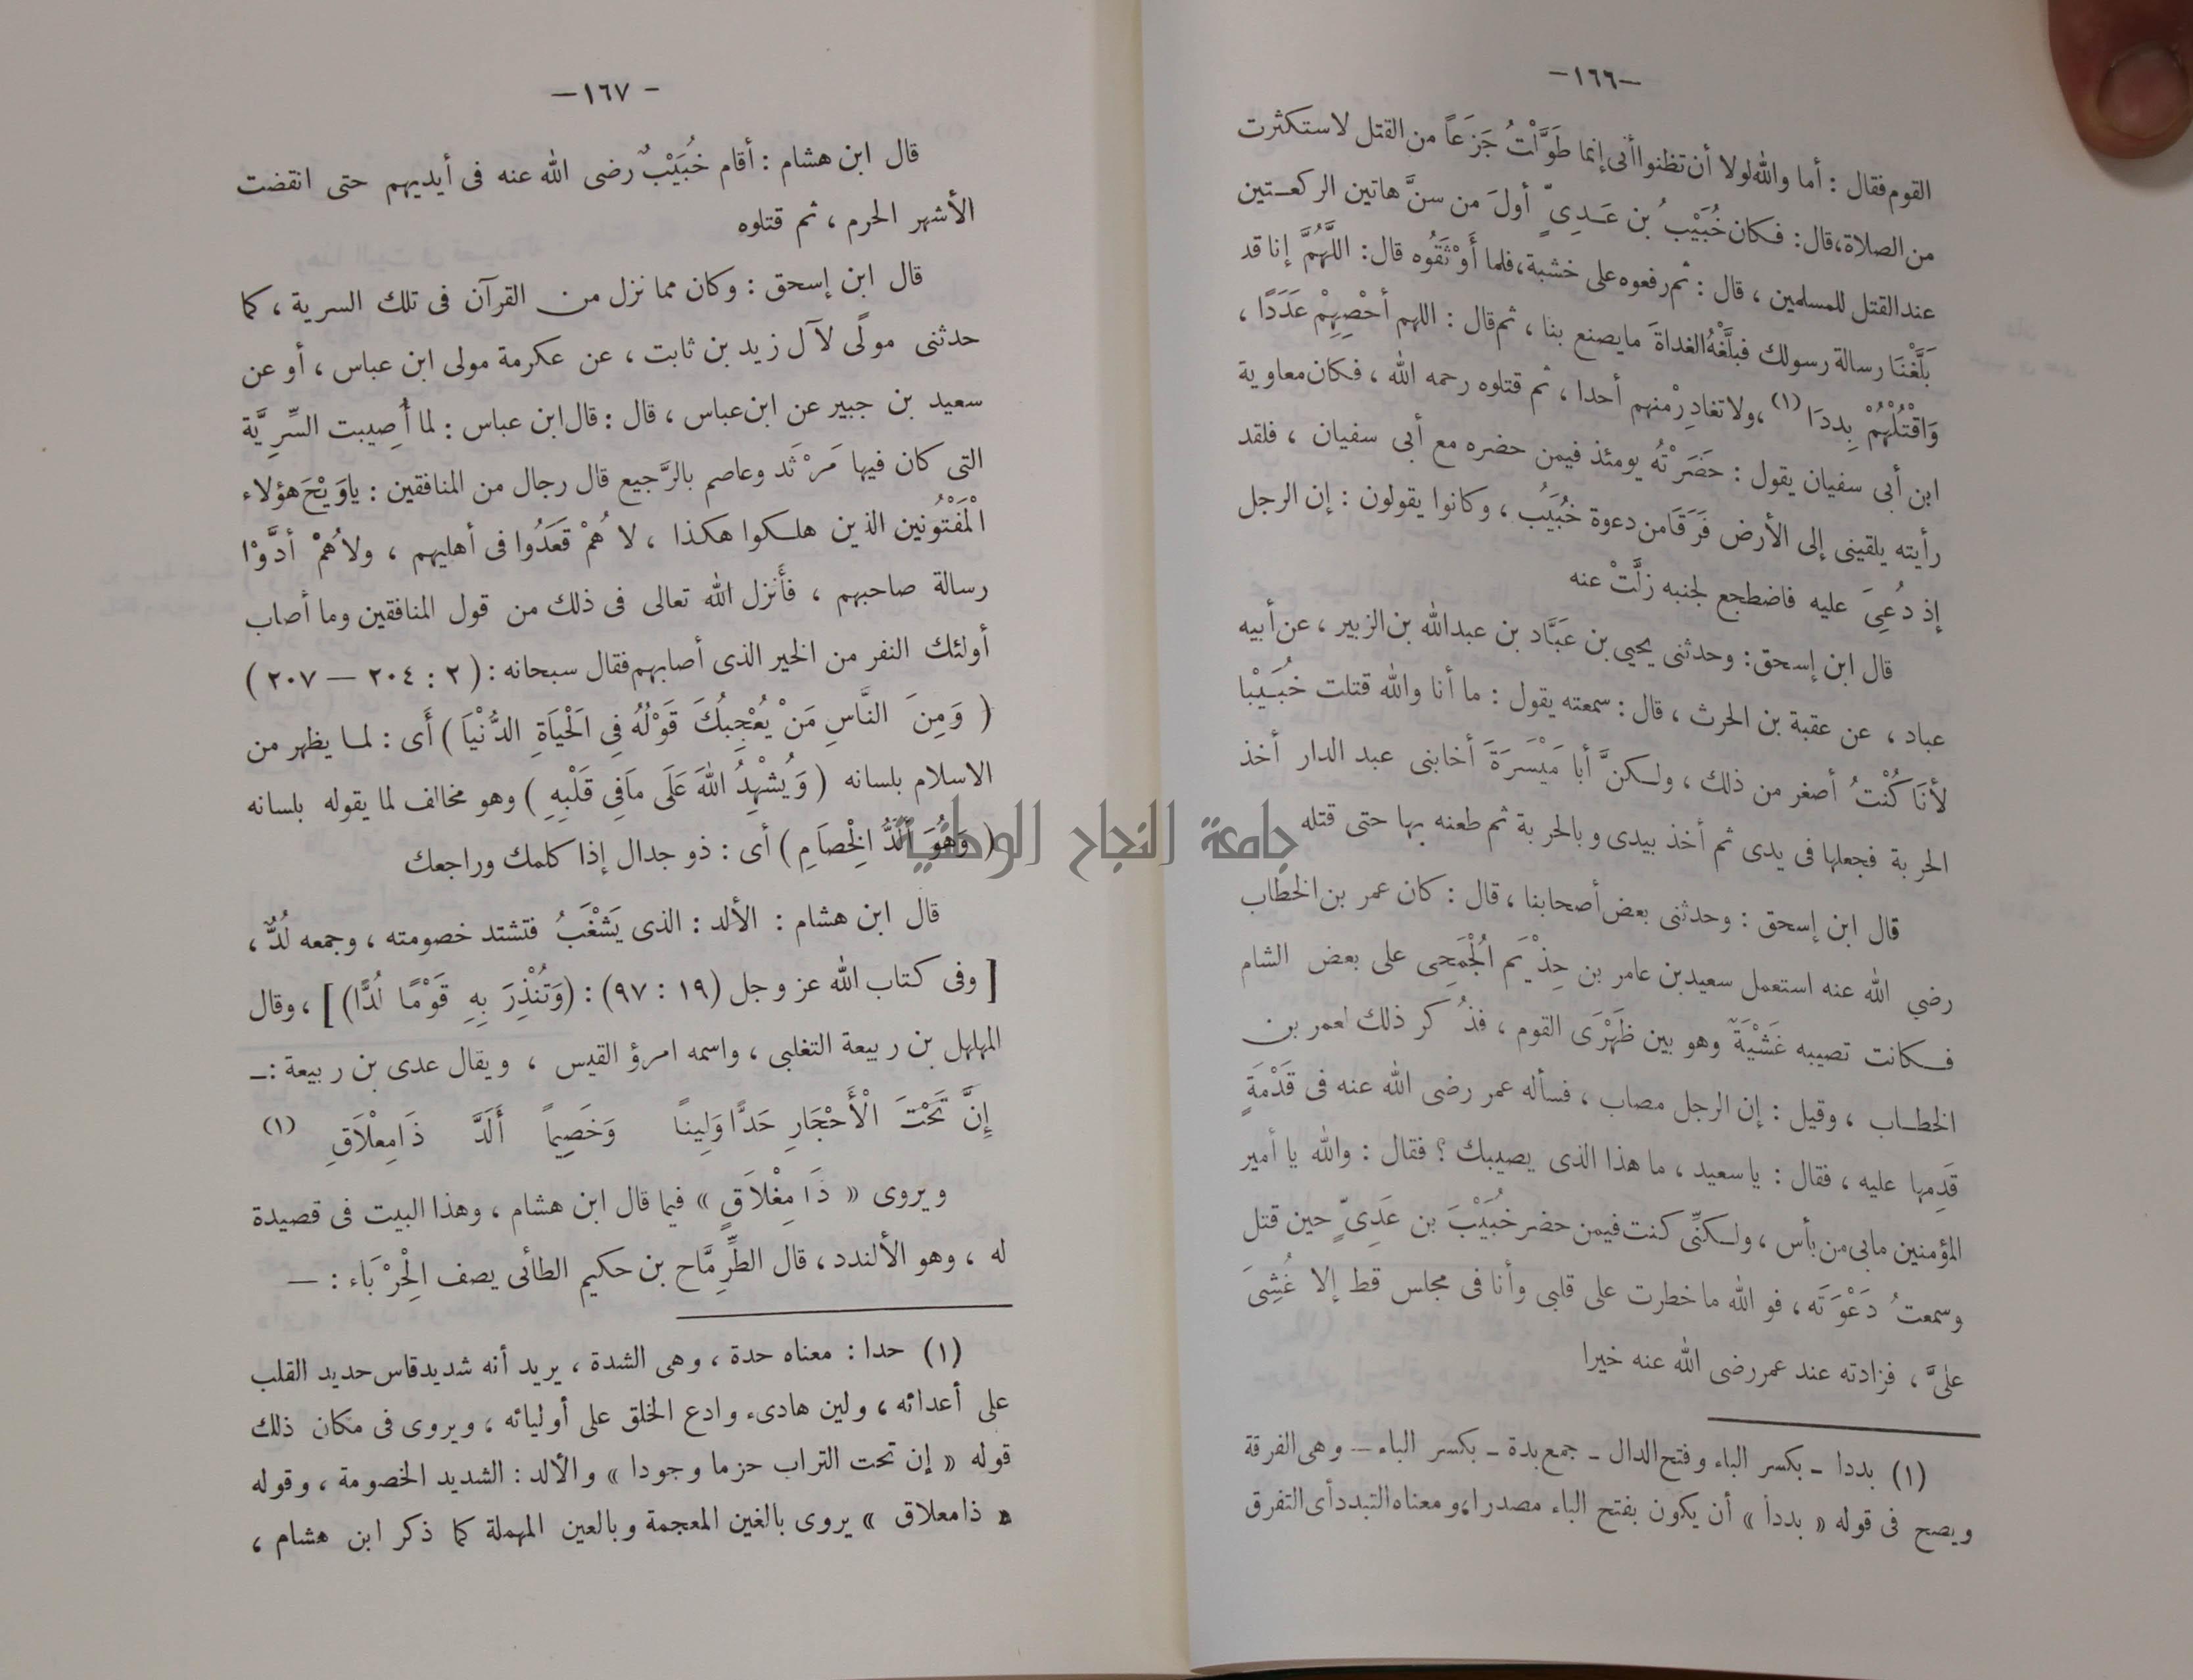 —١٦٦—
القوم فقال : أما والله لولا أن تظنوا أنى إنما طَوَّلْتُ جَزَعاً من القتل لاستكثرت
من الصلاة، قال : فكان خُبَيْبُ بن عَدِىٍّ أولَ من سنَّ هاتين الركعتين
عند القتل للمسلمين ، قال : ثم رفعوه على خشبة، فلما أَوْثَقُوه قال : اللَّهُمَّ إنا قد
بَلَّغْنَا رسالة رسولك فبلِّغْهُ الغداةَ ما يصنع بنا ، ثم قال : اللهم أحْصِهِمْ عَدَدًا ،
وَاقْتُلْهُمْ بِدَدَا (١) ، ولا تغادِرْ منهم أحدا ، ثم قتلوه رحمه الله ، فكان معاوية
ابن أبى سفيان يقول : حَضَرْتُه يومئذ فيمن حضره مع أبى سفيان ، فلقد
رأيته يلقينى إلى الأرض فَرَقَا من دعوة خُبَيْبُ ، وكانوا يقولون : إن الرجل
إذ دُعِىَ عليه فاضطجع لجنبه زلَّتْ عنه
قال ابن إسحق : وحدثنى يحيى بن عَبَّاد بن عبد الله بن الزبير ، عن أبيه
عباد ، عن عقبة بن الحرث ، قال : سمعته يقول : ما أنا والله قتلت خُبَيْبا
لأنَا كُنْتُ أصغر من ذلك ، ولكنَّ أبا مَيْسَرَةَ أخا بنى عبد الدار أخذ
الحربة فجعلها فى يدى ثم أخذ بيدى وبالحربة ثم طعنه بها حتى قتله
قال ابن إسحق : وحدثنى بعض أصحابنا ، قال : كان عمر بن الخطاب
رضي الله عنه استعمل سعيد بن عامر بن حِذْيَم الْجُمَحِى على بعض الشام
فكانت تصيبه غَشْيَةٌ وهو بين ظَهْرَى القوم ، فذُكر ذلك لعمر بن
الخطاب ، وقيل : إن الرجل مصاب ، فسأله عمر رضى الله عنه فى قَدْمَةٍ
قَدِمها عليه ، فقال : يا سعيد ، ما هذا الذى يصيبك ؟ فقال : والله يا أمير
المؤمنين مابى من بأس ، ولكنِّى كنت فيمن حضر خُبَيْبَ بن عَدِىٍّ حين قتل
وسمعتُ دَعْوَتَه ، فو الله ما خطرت على قلبى وأنا فى مجلس قط إلا غُشِىَ
علىَّ ، فزادته عند عمر رضى الله عنه خيرا
(١) بددا ـ بكسر الباء وفتح الدال ـ جمع بدة ـ بكسر الباء ـ وهى الفرقة
ويصح فى قوله « بددا » أن يكون بفتح الباء مصدرا، ومعناه التبدد أى التفرق
- ١٦٧—
قال ابن هشام : أقام خُبَيْبٌ رضى الله عنه فى أيديهم حتى انقضت
الأشهر الحرم ، ثم قتلوه
قال ابن إسحق : وكان مما نزل من القرآن فى تلك السرية ، كما
حدثنى مولًى لآل زيد بن ثابت ، عن عكرمة مولى ابن عباس ، أو عن
سعيد بن جبير عن ابن عباس ، قال : قال ابن عباس : لما أُصِيبت السِّرِيَّة
التى كان فيها مَرْثَد وعاصم بالرَّجيع قال رجال من المنافقين : ياوَيْحَ هؤلاء
الْمَفْتُونين الذين هلكوا هكذا ، لا هُمْ قَعَدُوا فى أهليهم ، ولا هُمْ أدَّوْا
رسالة صاحبهم ، فأَنزل الله تعالى فى ذلك من قول المنافقين وما أصاب
أولئك النفر من الخير الذى أصابهم فقال سبحانه : (٢ : ٢٠٤ — ٢٠٧)
( وَمِنَ النَّاسِ مَنْ يُعْجِبُكَ قَوْلُهُ فِى الْحَيَاةِ الدُّنْيَا ) أَى : لما يظهر من
الاسلام بلسانه ( وَيُشْهِدُ اللهَ عَلَى مَافِى قَلْبِهِ ) وهو مخالف لما يقوله بلسانه
( وَهُوَ أَلَدُّ الْخِصَامِ ) أى : ذو جدال إذا كلمك وراجعك
قال ابن هشام : الألد : الذى يَشْغَبُ فتشتد خصومته ، وجمعه لُدٌّ ،
[ وفى كتاب الله عز وجل (١٩ : ٩٧) : (وَتُنْذِرَ بِهِ قَوْمًا لُدًّا) ] ، وقال
المهلهل بن ربيعة التغلبى ، واسمه امرؤ القيس ، ويقال عدى بن ربيعة :ـ
إِنَّ تَحْتَ الْأَحْجَارِ حَدًّا وَلِينًا وَخَصِيماً أَلَدَّ ذَا مِعْلَاقِ (١)
ويروى « ذَا مِغْلاَقٍ » فيما قال ابن هشام ، وهذا البيت فى قصيدة
له ، وهو الألندد ، قال الطِّرِمَّاح بن حكيم الطائى يصف الْحِرْبَاء : —
(١) حدا : معناه حدة ، وهى الشدة ، يريد أنه شديد قاس حديد القلب
على أعدائه ، ولين هادىء وادع الخلق على أوليائه ، ويروى فى مكان ذلك
قوله « إن تحت التراب حزما وجودا » والألد : الشديد الخصومة ، وقوله
« ذا معلاق » يروى بالغين المعجمة وبالعين المهملة كما ذكر ابن هشام ،
جامعة النجاح الوطنية